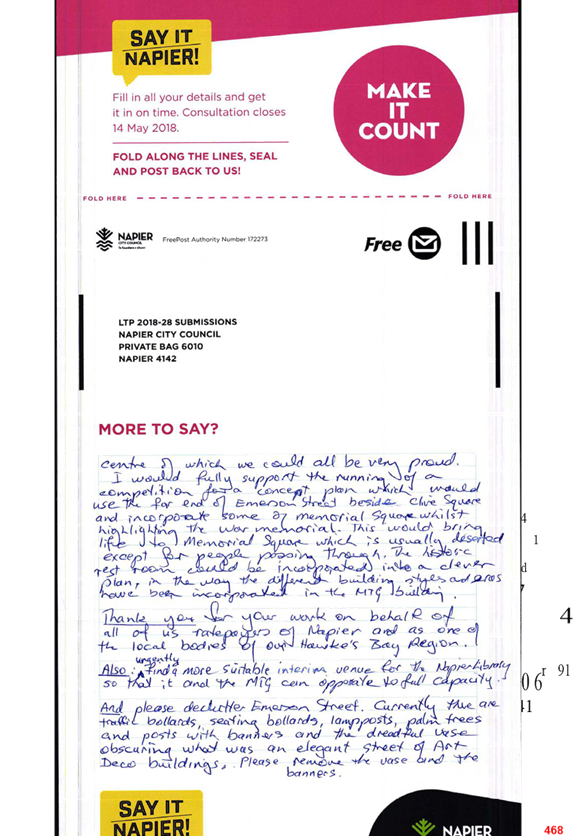 SAY IT
NAPIER!
Fill in all your details and get
it in on time. Consultation closes
14 May 2018.
FOLD ALONG THE LINES, SEAL
AND POST BACK TO US!
MAKE
IT
COUNT
FOLD HERE
FOLD HERE
NAPIER
CITY COUNCIL
FreePost Authority Number 172273
Free
LTP 2018-28 SUBMISSIONS
NAPIER CITY COUNCIL
PRIVATE BAG 6010
NAPIER 4142
MORE TO SAY?
centre of which we could all be very proud.
I would fully support the running of a
competition for a concept plan which would
use the far end of Emerson Street beside Clive Square
and incorporate some of memorial Square whilst
highlighting the war memorial. This would bring
life to Memorial Square which is usually deserted
except for people passing through. The historic
rest room could be incorporated into a clever
plan, in the way the different building styles and eras
have been incorporated in the MTG building.
Thank you for your work on behalf of
all of us ratepayers of Napier and as one of
the local bodies of our Hawke's Bay Region.
urgently
Also: find a more suitable interim venue for the Napier Library
so that it and the MTG can opperate to full capacity.
And please declutter Emerson Street. Currently there are
traffic bollards, seating bollards, lampposts, palm trees
and posts with banners and the dreadful vase
obscuring what was an elegant street of Art
Deco buildings. Please remove the vase and the
banners.
4
1
d
4
r 91
06
41
SAY IT
NAPIER!
NAPIER
468